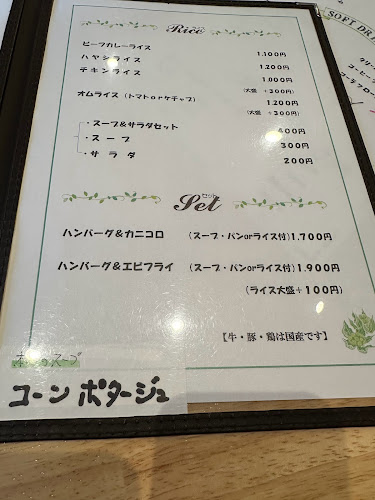 Rice
ビーフカレーライス 1,100円
ハヤシライス 1,200円
チキンライス 1,000円
(大盛 +300円)
オムライス (トマトorケチャプ) 1,200円
(大盛 +300円)
・スープ&サラダセット 400円
・スープ 300円
・サラダ 200円
セット
Set
ハンバーグ&カニコロ (スープ・パンorライス付) 1,700円
ハンバーグ&エビフライ (スープ・パンorライス付) 1,900円
(ライス大盛+100円)
【牛・豚・鶏は国産です】
本日のスープ
コーン ポタージュ
SOFT DRI